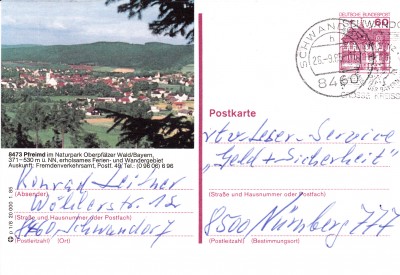 DEUTSCHE BUNDESPOST
60
SCHWANDORF
8460
8473 Pfreimd im Naturpark Oberpfälzer Wald/Bayern,
371–530 m ü. NN, erholsames Ferien- und Wandergebiet
Auskunft: Fremdenverkehrsamt, Postf. 49, Tel.: (0 96 06) 6 96
Konrad Leitner
(Absender)
Wöhlerstr. 12
(Straße und Hausnummer oder Postfach)
8460 Schwandorf
(Postleitzahl) (Ort)
Postkarte
rtv Leser-Service
"Geld + Sicherheit"
(Straße und Hausnummer oder Postfach)
8500 Nürnberg 777
(Postleitzahl) (Bestimmungsort)